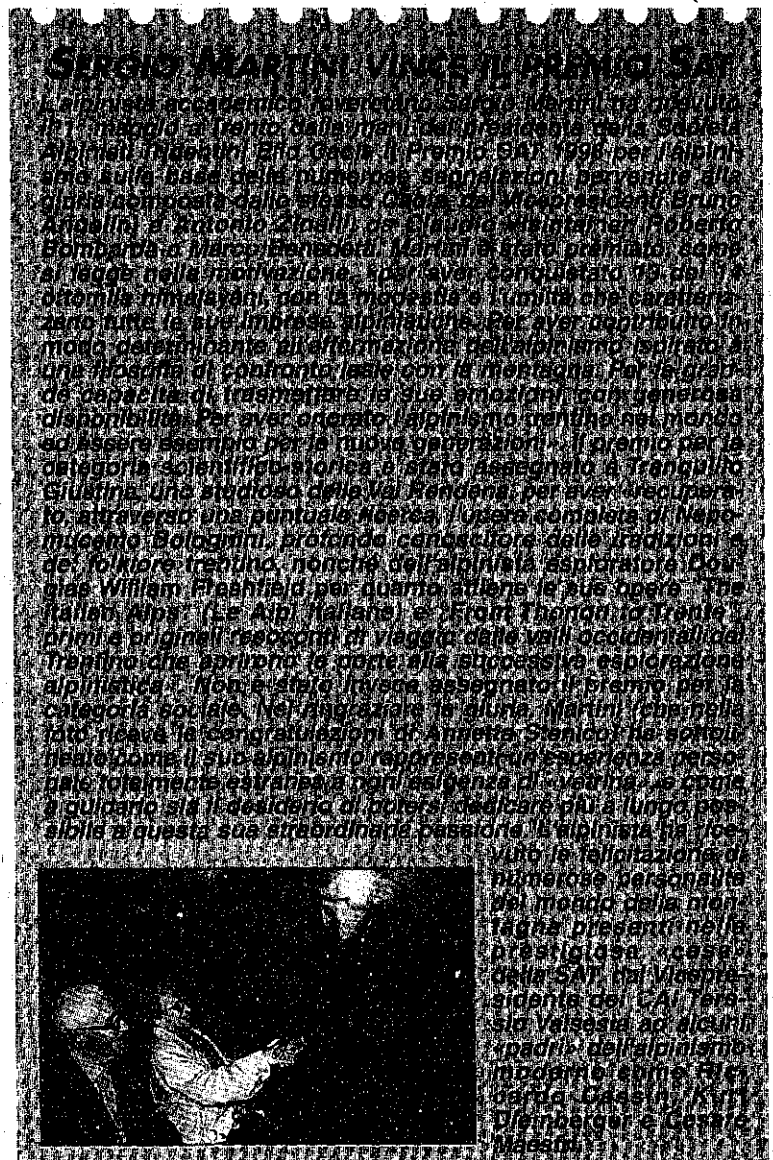 SERGIO MARTINI VINCE IL PREMIO SAT
L'alpinista accademico roveretano Sergio Martini ha ricevuto
maggio a Trento dalle mani del presidente della Società
Alpinisti Tridentini Elio Caola il Premio SAT 1998 per l'alpini-
smo sulla base delle numerose segnalazioni pervenute alla
giuria composta dallo stesso Caola, dai Vicepresidenti Bruno
Angelini e Antonio Zinelli, da Claudio Roberto
Bombarda e Marco Benedetti. Martini è stato premiato, come
si legge nella motivazione, «per aver conquistato 13 dei 14
ottomila himalayani, con la modestia e l'umiltà che caratteriz-
zano tutte le sue imprese alpinistiche. Per aver contribuito in
modo determinante all'affermazione dell'alpinismo ispirato a
una filosofia di confronto leale con la montagna. Per la gran-
de capacità di trasmettere le sue emozioni con generosa
disponibilità. Per aver onorato l'alpinismo trentino nel mondo
ed essere esempio per le nuove generazioni». Il premio per la
categoria scientifico-storica è stato assegnato a Tranquillo
Giustina, uno studioso della Val Rendena, per aver «recupera-
to, attraverso una puntuale ricerca, l'opera completa di Nepo-
muceno Bolognini, profondo conoscitore delle tradizioni e
del folklore trentino, nonché dell'alpinista esploratore Dou-
glas William Freshfield per quanto attiene le sue opere "The
Italian Alps" (Le Alpi Italiane) e "From Thonon to Trento",
primi e originali resoconti di viaggio dalle valli occidentali del
Trentino che aprirono le porte alla successiva esplorazione
alpinistica». Non è stato invece assegnato il premio per la
categoria sociale. Nel ringraziare la giuria, Martini (che nella
foto riceve le congratulazioni di Annetta Stenico) ha sottoli-
neato come il suo alpinismo rappresenti un'esperienza perso-
nale totalmente estranea a ogni esigenza di «vetrina», e come
a guidarlo sia il desiderio di potersi dedicare più a lungo pos-
sibile a questa sua straordinaria passione. L'alpinista ha rice-
vuto le felicitazioni di
numerose personalità
del mondo della mon-
tagna presenti nella
prestigiosa «casa»
della SAT, dal Vicepre-
sidente del CAI Tere-
sio Valsesia ad alcuni
«padri» dell'alpinismo
moderno come Ric-
cardo Cassin, Kurt
Diemberger e Cesare
Maestri.